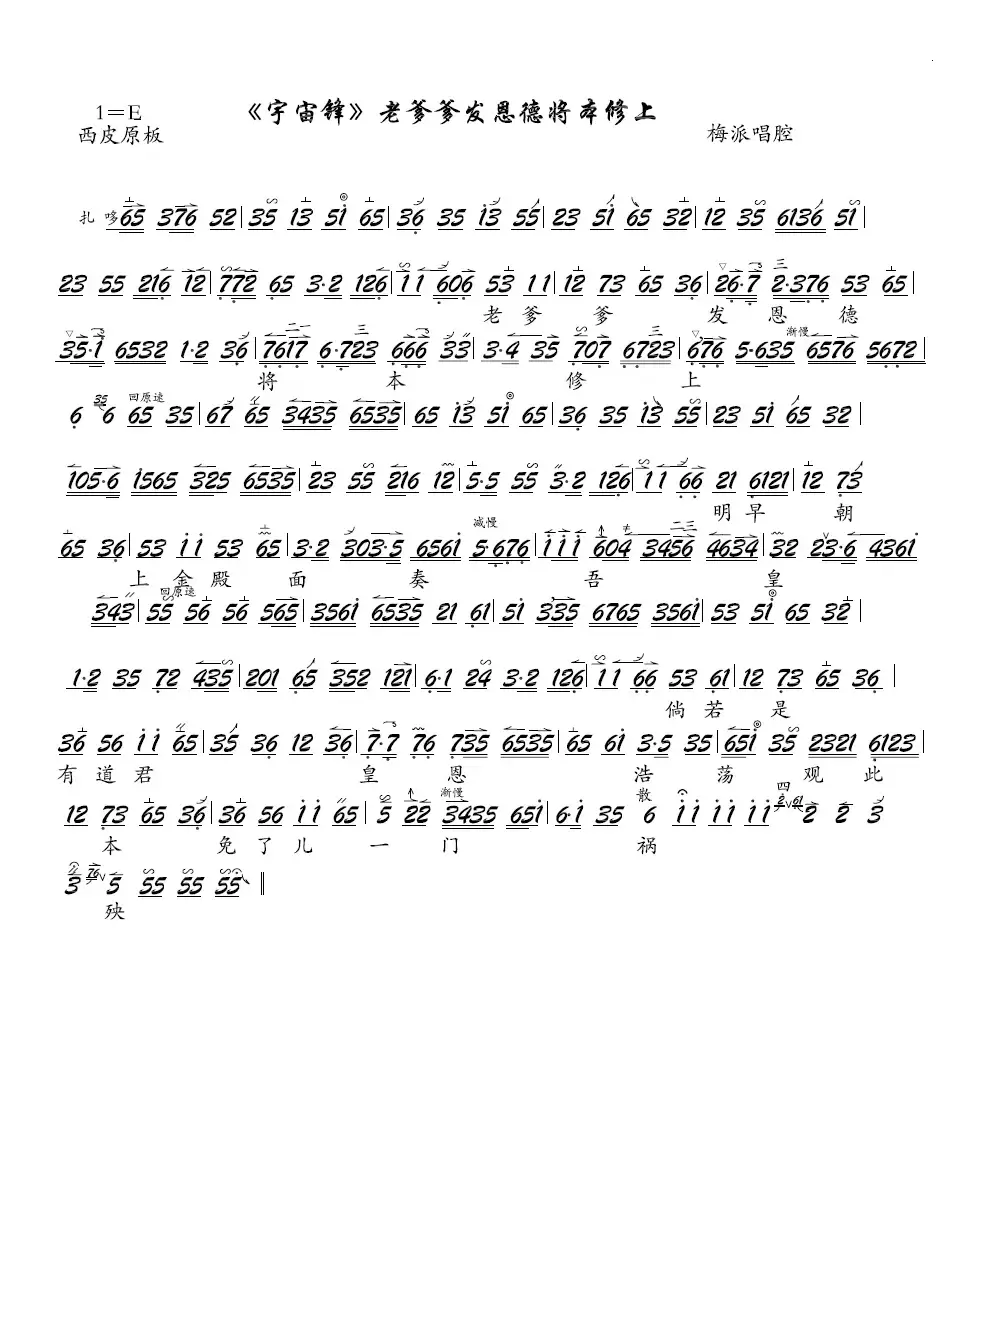 1=E 《宇宙锋》老爹爹发恩德将本修上
西皮原板 梅派唱腔
扎 哆 65 376 52 | 35 13 51 65 | 36 35 13 55 | 23 51 65 32 | 12 35 6136 51 |
23 55 216 12 | 772 65 3·2 126 | 11 606 53 11 | 12 73 65 36 | 26·7 2·376 53 65 |
老 爹 爹 发 恩 德
渐慢
35·1 6532 1·2 36 | 7617 6·723 666 33 | 3·4 35 707 6723 | 676 5·635 6576 5672 |
将 本 修 上
35 回原速
6 6 65 35 | 67 65 3435 6535 | 65 13 51 65 | 36 35 13 55 | 23 51 65 32 |
105·6 1565 325 6535 | 23 55 216 12 | 5·5 55 3·2 126 | 11 66 21 6121 | 12 73
明 早 朝
减慢
65 36 | 53 11 53 65 | 3·2 303·5 6561 5·676 | 111 604 3456 4634 | 32 23·6 4361
上 金 殿 面 奏 吾 皇
回原速
343 | 55 56 56 565 | 3561 6535 21 61 | 51 335 6765 3561 | 53 51 65 32 |
1·2 35 72 435 | 201 65 352 121 | 6·1 24 3·2 126 | 11 66 53 61 | 12 73 65 36 |
倘 若 是
36 56 11 65 | 35 36 12 36 | 7·7 76 735 6535 | 65 61 3·5 35 | 651 35 2321 6123 |
有 道 君 皇 恩 浩 荡 观 此
渐慢 散 四
12 73 65 36 | 36 56 11 65 | 5 22 3435 651 | 6·1 35 6 11 11 11 2 2 3
本 免 了 儿 一 门 祸
3 76 5 55 55 55 ‖
殃